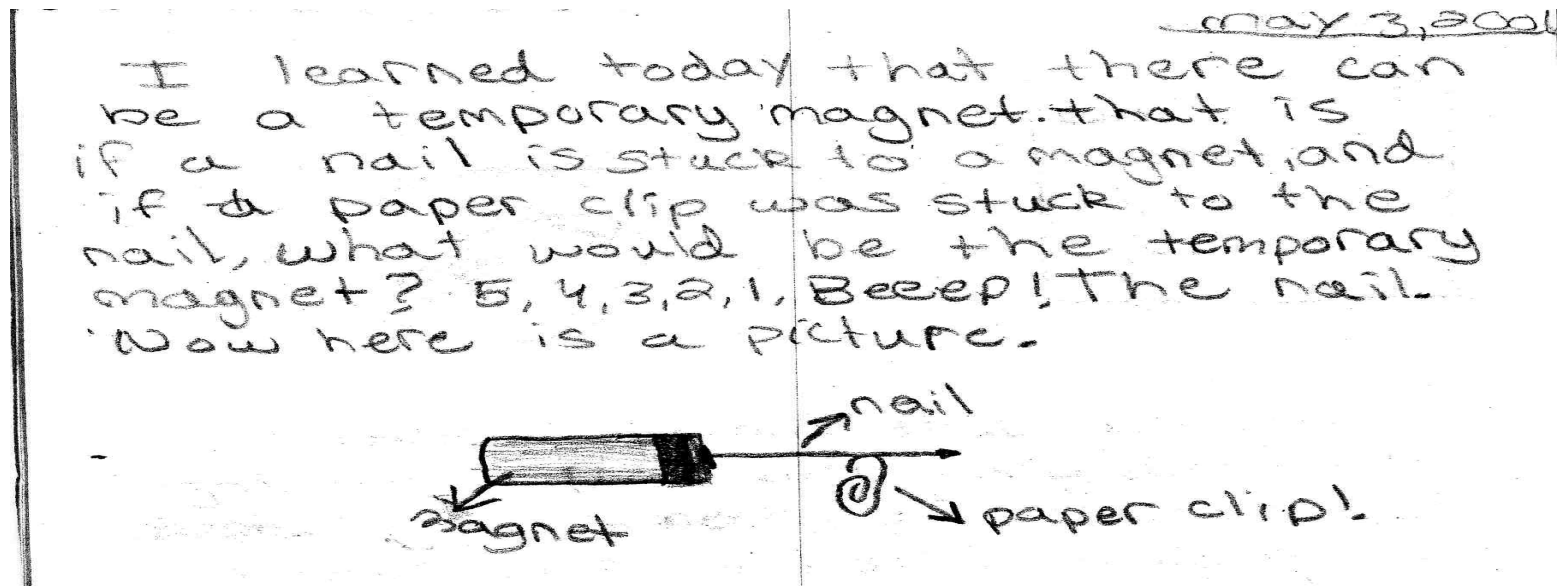 may 3, 200
I learned today that there can
be a temporary magnet. that is
if a nail is stuck to a magnet, and
if a paper clip was stuck to the
nail, what would be the temporary
magnet? 5, 4, 3, 2, 1, Beeep! The nail.
Now here is a picture.
nail
magnet
paper clip!